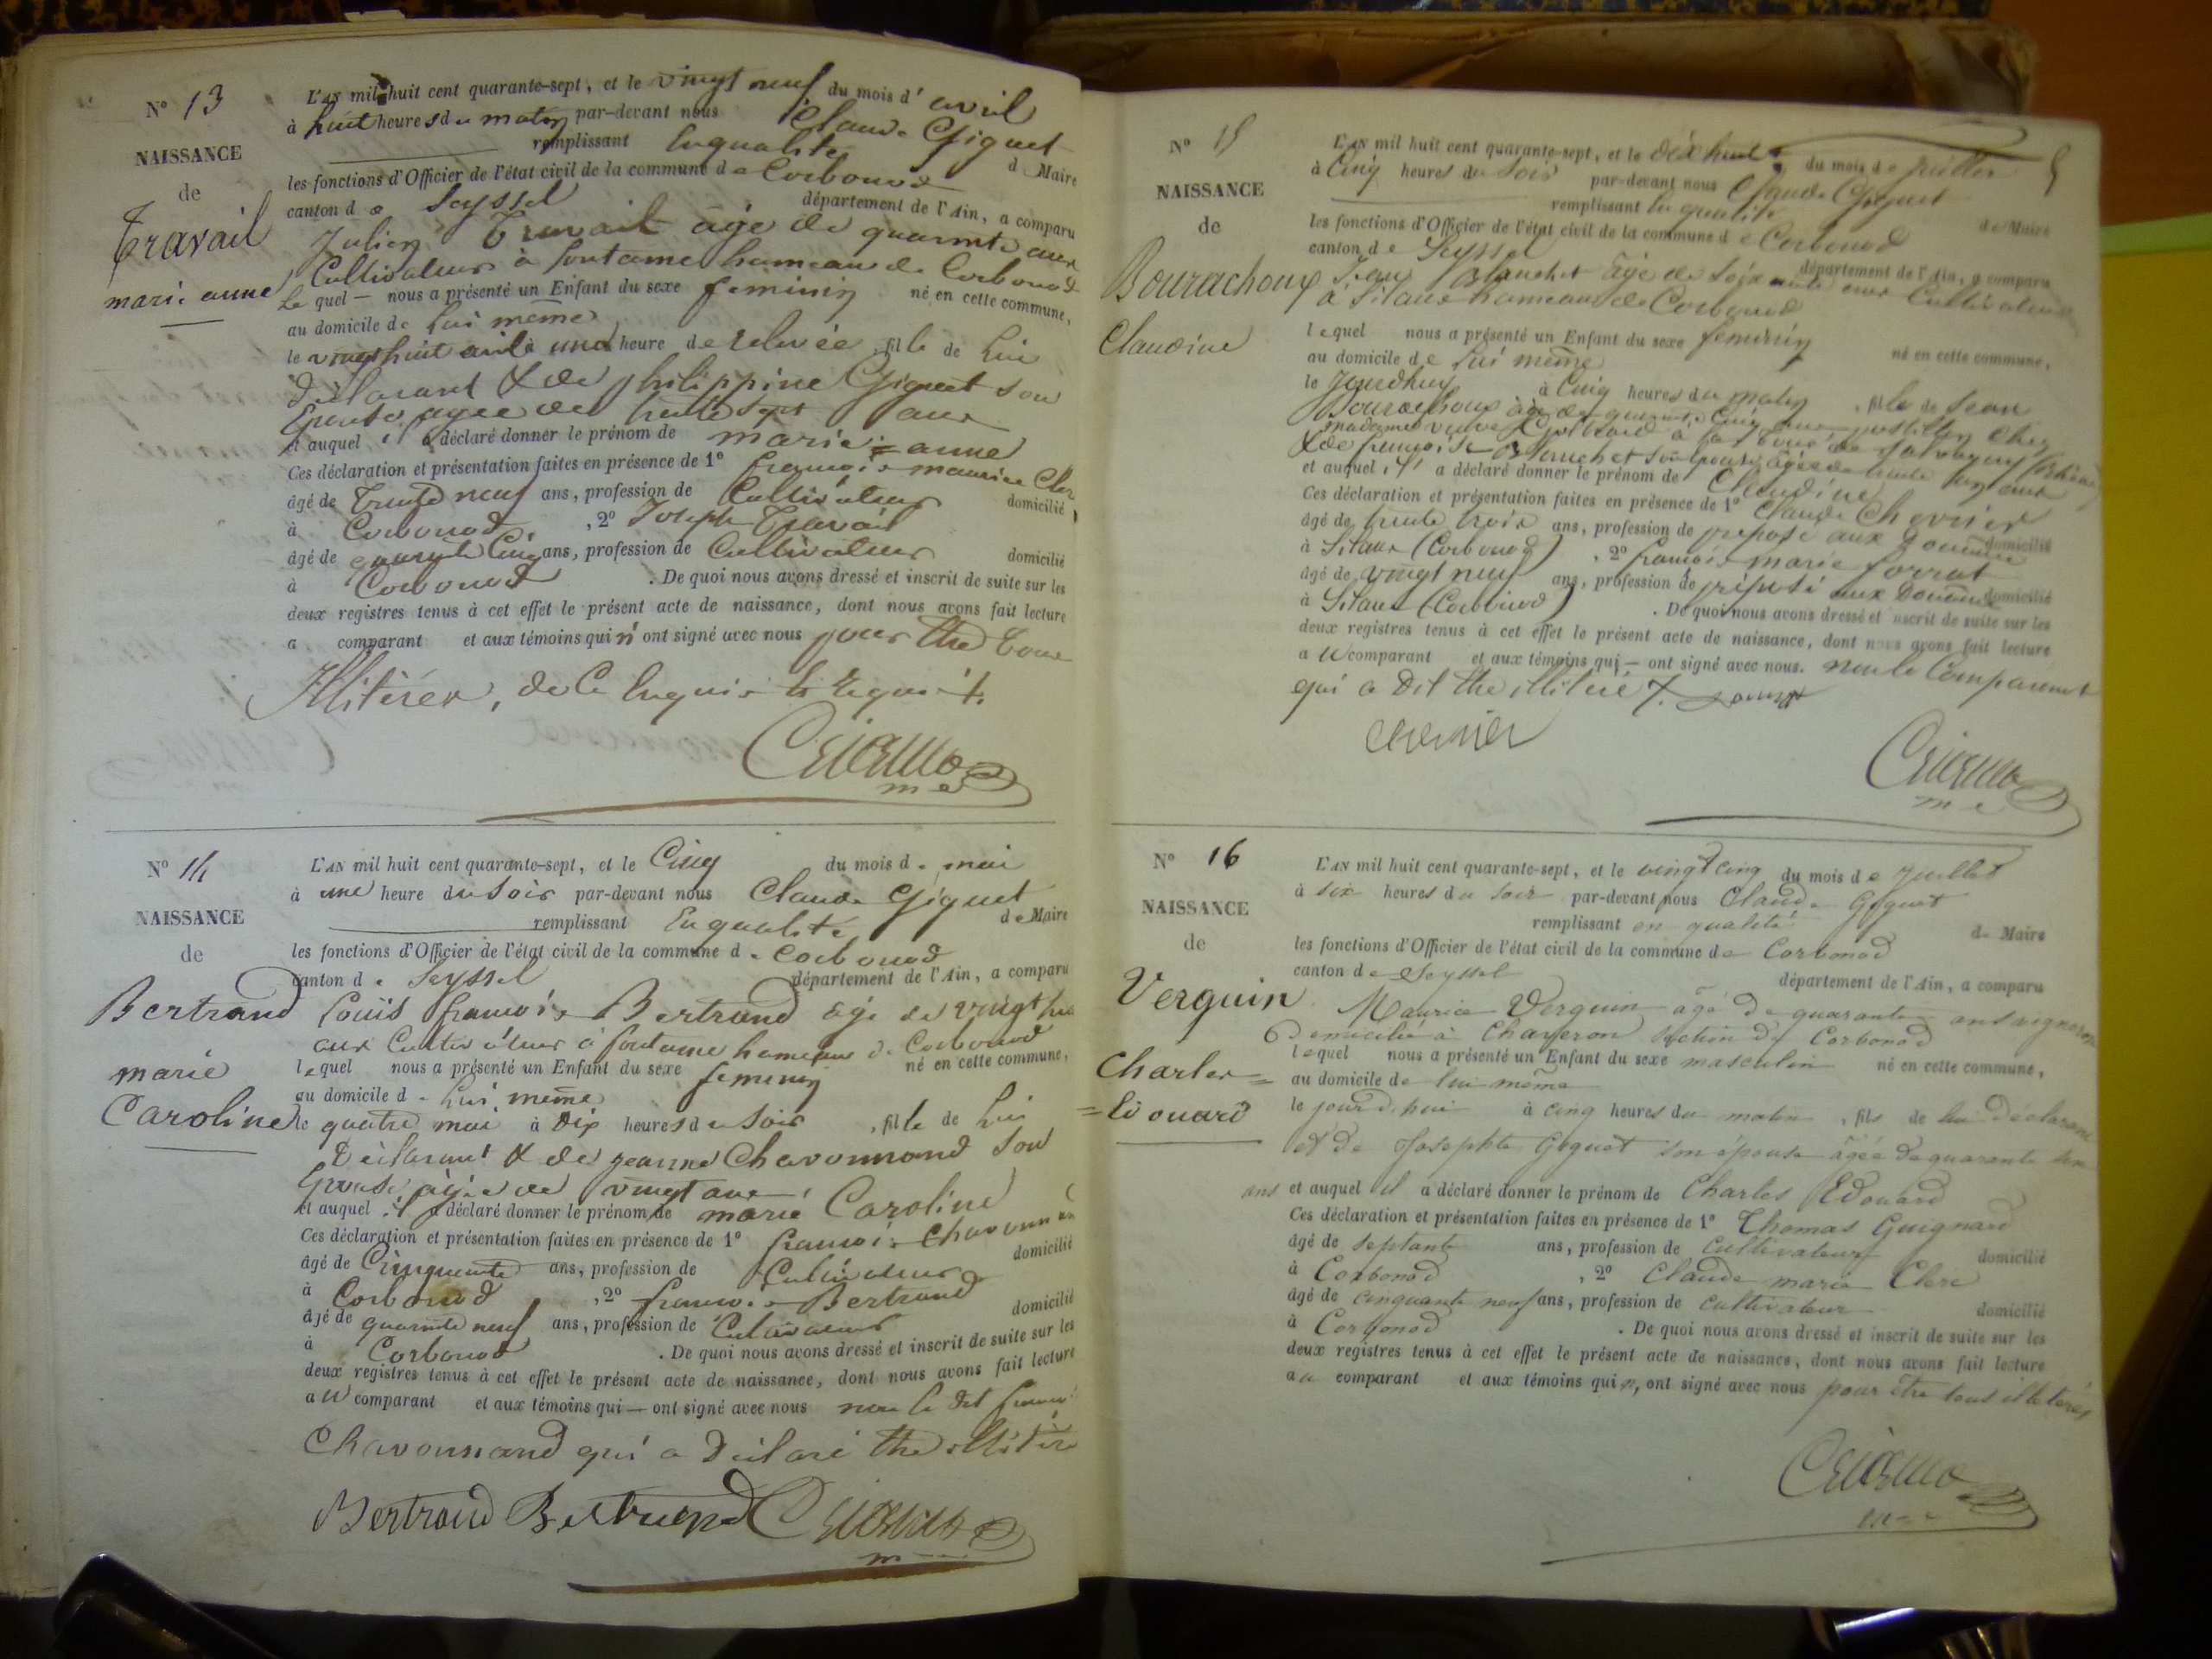 N° 13
NAISSANCE
de
Travail
marie anne
L'AN mil huit cent quarante-sept, et le vingt neuf du mois d' avril
à huit heures du matin par-devant nous Claude Giguet
remplissant En qualité de Maire
les fonctions d'Officier de l'état civil de la commune de Corbonod
canton de Seyssel département de l'Ain, a comparu
Julien Travail âgé de quarante ans
Cultivateur à fontaine hameau de Corbonod
Le quel nous a présenté un Enfant du sexe feminin né en cette commune,
au domicile de lui même
le vingt huit avril à une heure de relevée, fille de lui
déclarant & de philippine Giguet son
Epouse agée de trente sept ans
et auquel il a déclaré donner le prénom de marie=anne
Ces déclaration et présentation faites en présence de 1° françois maurice Clerc
âgé de trente neuf ans, profession de Cultivateur domicilié
à Corbonod, 2° Joseph Travail
âgé de quarante Cinq ans, profession de Cultivateur domicilié
à Corbonod. De quoi nous avons dressé et inscrit de suite sur les
deux registres tenus à cet effet le présent acte de naissance, dont nous avons fait lecture
a comparant et aux témoins qui n'ont signé avec nous pour être tous
Illitérés, de Ce Enquis & Requis.
N° 14
NAISSANCE
de
Bertrand
marie
Caroline
L'AN mil huit cent quarante-sept, et le Cinq du mois de mai
à une heure du soir par-devant nous Claude Giguet
remplissant En qualité de Maire
les fonctions d'Officier de l'état civil de la commune de Corbonod
canton de Seyssel département de l'Ain, a comparu
Louis françois Bertrand âgé de vingt huit
ans Cultivateur à fontaine hameau de Corbonod
lequel nous a présenté un Enfant du sexe feminin né en cette commune,
au domicile de lui même
le quatre mai à dix heures du soir, fille de lui
Déclarant & de jeanne Chavonnand son
Epouse âgée de vingt ans
et auquel il a déclaré donner le prénom de marie Caroline
Ces déclaration et présentation faites en présence de 1° françois Chavonnand
âgé de Cinquante ans, profession de Cultivateur domicilié
à Corbonod, 2° françois Bertrand
âgé de quarante neuf ans, profession de Cultivateur domicilié
à Corbonod. De quoi nous avons dressé et inscrit de suite sur les
deux registres tenus à cet effet le présent acte de naissance, dont nous avons fait lecture
au comparant et aux témoins qui — ont signé avec nous non le dit françois
Chavonnand qui a Déclaré être illitéré
Bertrand Bertrand
N° 15
NAISSANCE
de
Bourachoux
Claudine
L'AN mil huit cent quarante-sept, et le dix huit du mois de juillet
à Cinq heures du soir par-devant nous Claude Giguet
remplissant En qualité de Maire
les fonctions d'Officier de l'état civil de la commune de Corbonod
canton de Seyssel département de l'Ain, a comparu
Jean Blanchet âgé de soixante ans Cultivateur
à Silans hameau de Corbonod
lequel nous a présenté un Enfant du sexe feminin né en cette commune,
au domicile de lui même
le jourdhuy à Cinq heures du matin, fille de Jean
Bourachoux âgé de quarante Cinq ans postillon chez
madame veuve à la de
& de françoise Blanchet son épouse âgée de trente ans
et auquel il a déclaré donner le prénom de Claudine
Ces déclaration et présentation faites en présence de 1° Claude Chevrier
âgé de trente trois ans, profession de préposé aux Douanes domicilié
à Silans (Corbonod), 2° françois marie forrat
âgé de vingt neuf ans, profession de préposé aux Douanes domicilié
à Silans (Corbonod). De quoi nous avons dressé et inscrit de suite sur les
deux registres tenus à cet effet le présent acte de naissance, dont nous avons fait lecture
au comparant et aux témoins qui — ont signé avec nous. non le Comparant
qui a Dit être illitéré
chevrier
N° 16
NAISSANCE
de
Verguin
Charles=
=Edouard
L'AN mil huit cent quarante-sept, et le vingt cinq du mois de juillet
à six heures du soir par-devant nous Claude Giguet
remplissant en qualité de Maire
les fonctions d'Officier de l'état civil de la commune de Corbonod
canton de Seyssel département de l'Ain, a comparu
Maurice Verguin âgé de quarante ans vigneron
Domicilié à Charveron section de Corbonod
lequel nous a présenté un Enfant du sexe masculin né en cette commune,
au domicile de lui même
le jourd'hui à cinq heures du matin, fils de lui déclarant
et de Josephte Giguet son épouse âgée de quarante
ans et auquel il a déclaré donner le prénom de Charles Edouard
Ces déclaration et présentation faites en présence de 1° Thomas Guignard
âgé de septante ans, profession de cultivateur domicilié
à Corbonod, 2° Claude marie Clerc
âgé de cinquante neuf ans, profession de cultivateur domicilié
à Corbonod. De quoi nous avons dressé et inscrit de suite sur les
deux registres tenus à cet effet le présent acte de naissance, dont nous avons fait lecture
au comparant et aux témoins qui n'ont signé avec nous pour être tous illitérés